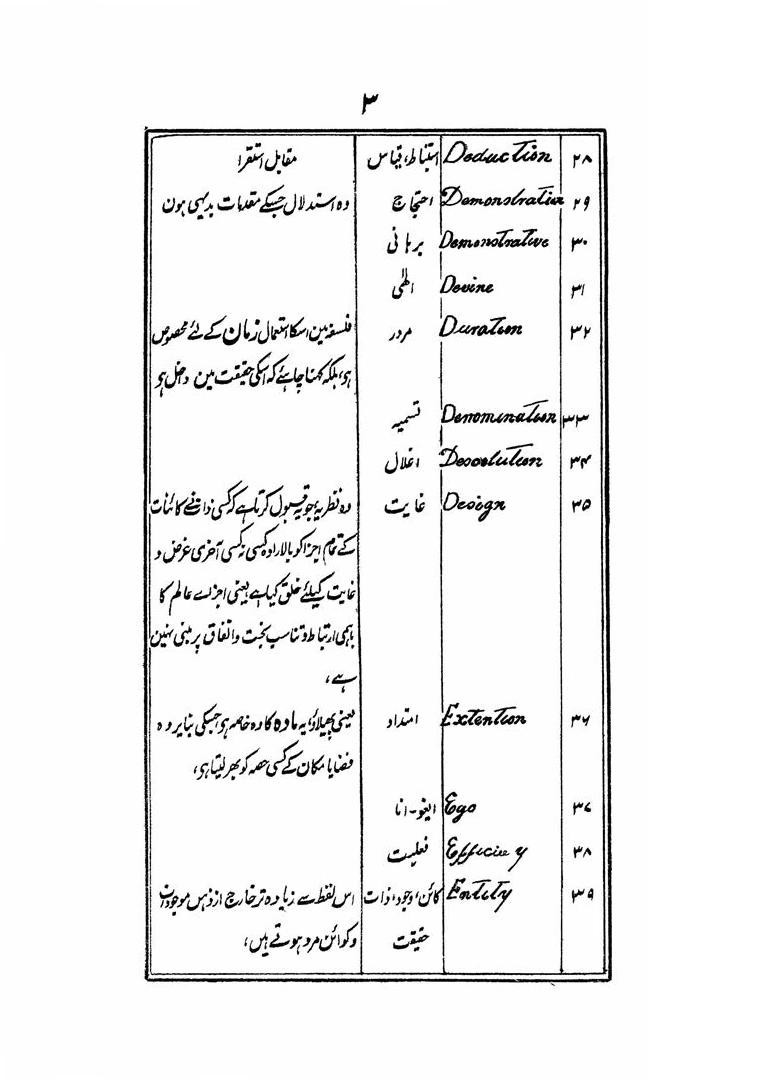 ۳
۲۸ Deduction استنباط، قیاس مقابل استقرا
۲۹ Demonstration احتجاج وہ استدلال جسکے مقدمات بدیہی ہون
۳۰ Demonstrative برہانی
۳۱ Devine الٰہی
۳۲ Duration مرور فلسفہ مین اسکا استعمال زمان کے لئے مخصوص
ہو، بلکہ کہنا چاہئے کہ اسکی حقیقت مین داخل ہو
۳۳ Denomination تسمیہ
۳۴ Desolution
۳۵ Design غایت وہ نظریہ جو یہ قبول کرتا ہے کہ کسی ذات نے کائنات
کے تمام اجزا کو بالارادہ کسی نہ کسی آخری غرض و
غایت کیلئے خلق کیا ہے یعنی اجزاے عالم کا
باہمی ارتباط و تناسب بخت و اتفاق پر مبنی نہین
ہے،
۳۶ Extention امتداد یعنی پھیلاؤ، یہ مادہ کا وہ خاصہ ہو جسکی بنا پر وہ
فضا یا مکان کے کسی حصہ کو بھر لیتا ہی،
۳۷ Ego ایغو-انا
۳۸ Efficiency فعلیت
۳۹ Entity کائن، وجود، ذات اس لفظ سے زیادہ تر خارج از ذہن موجودات
حقیقت و کوائن مرد ہوتے ہیں،